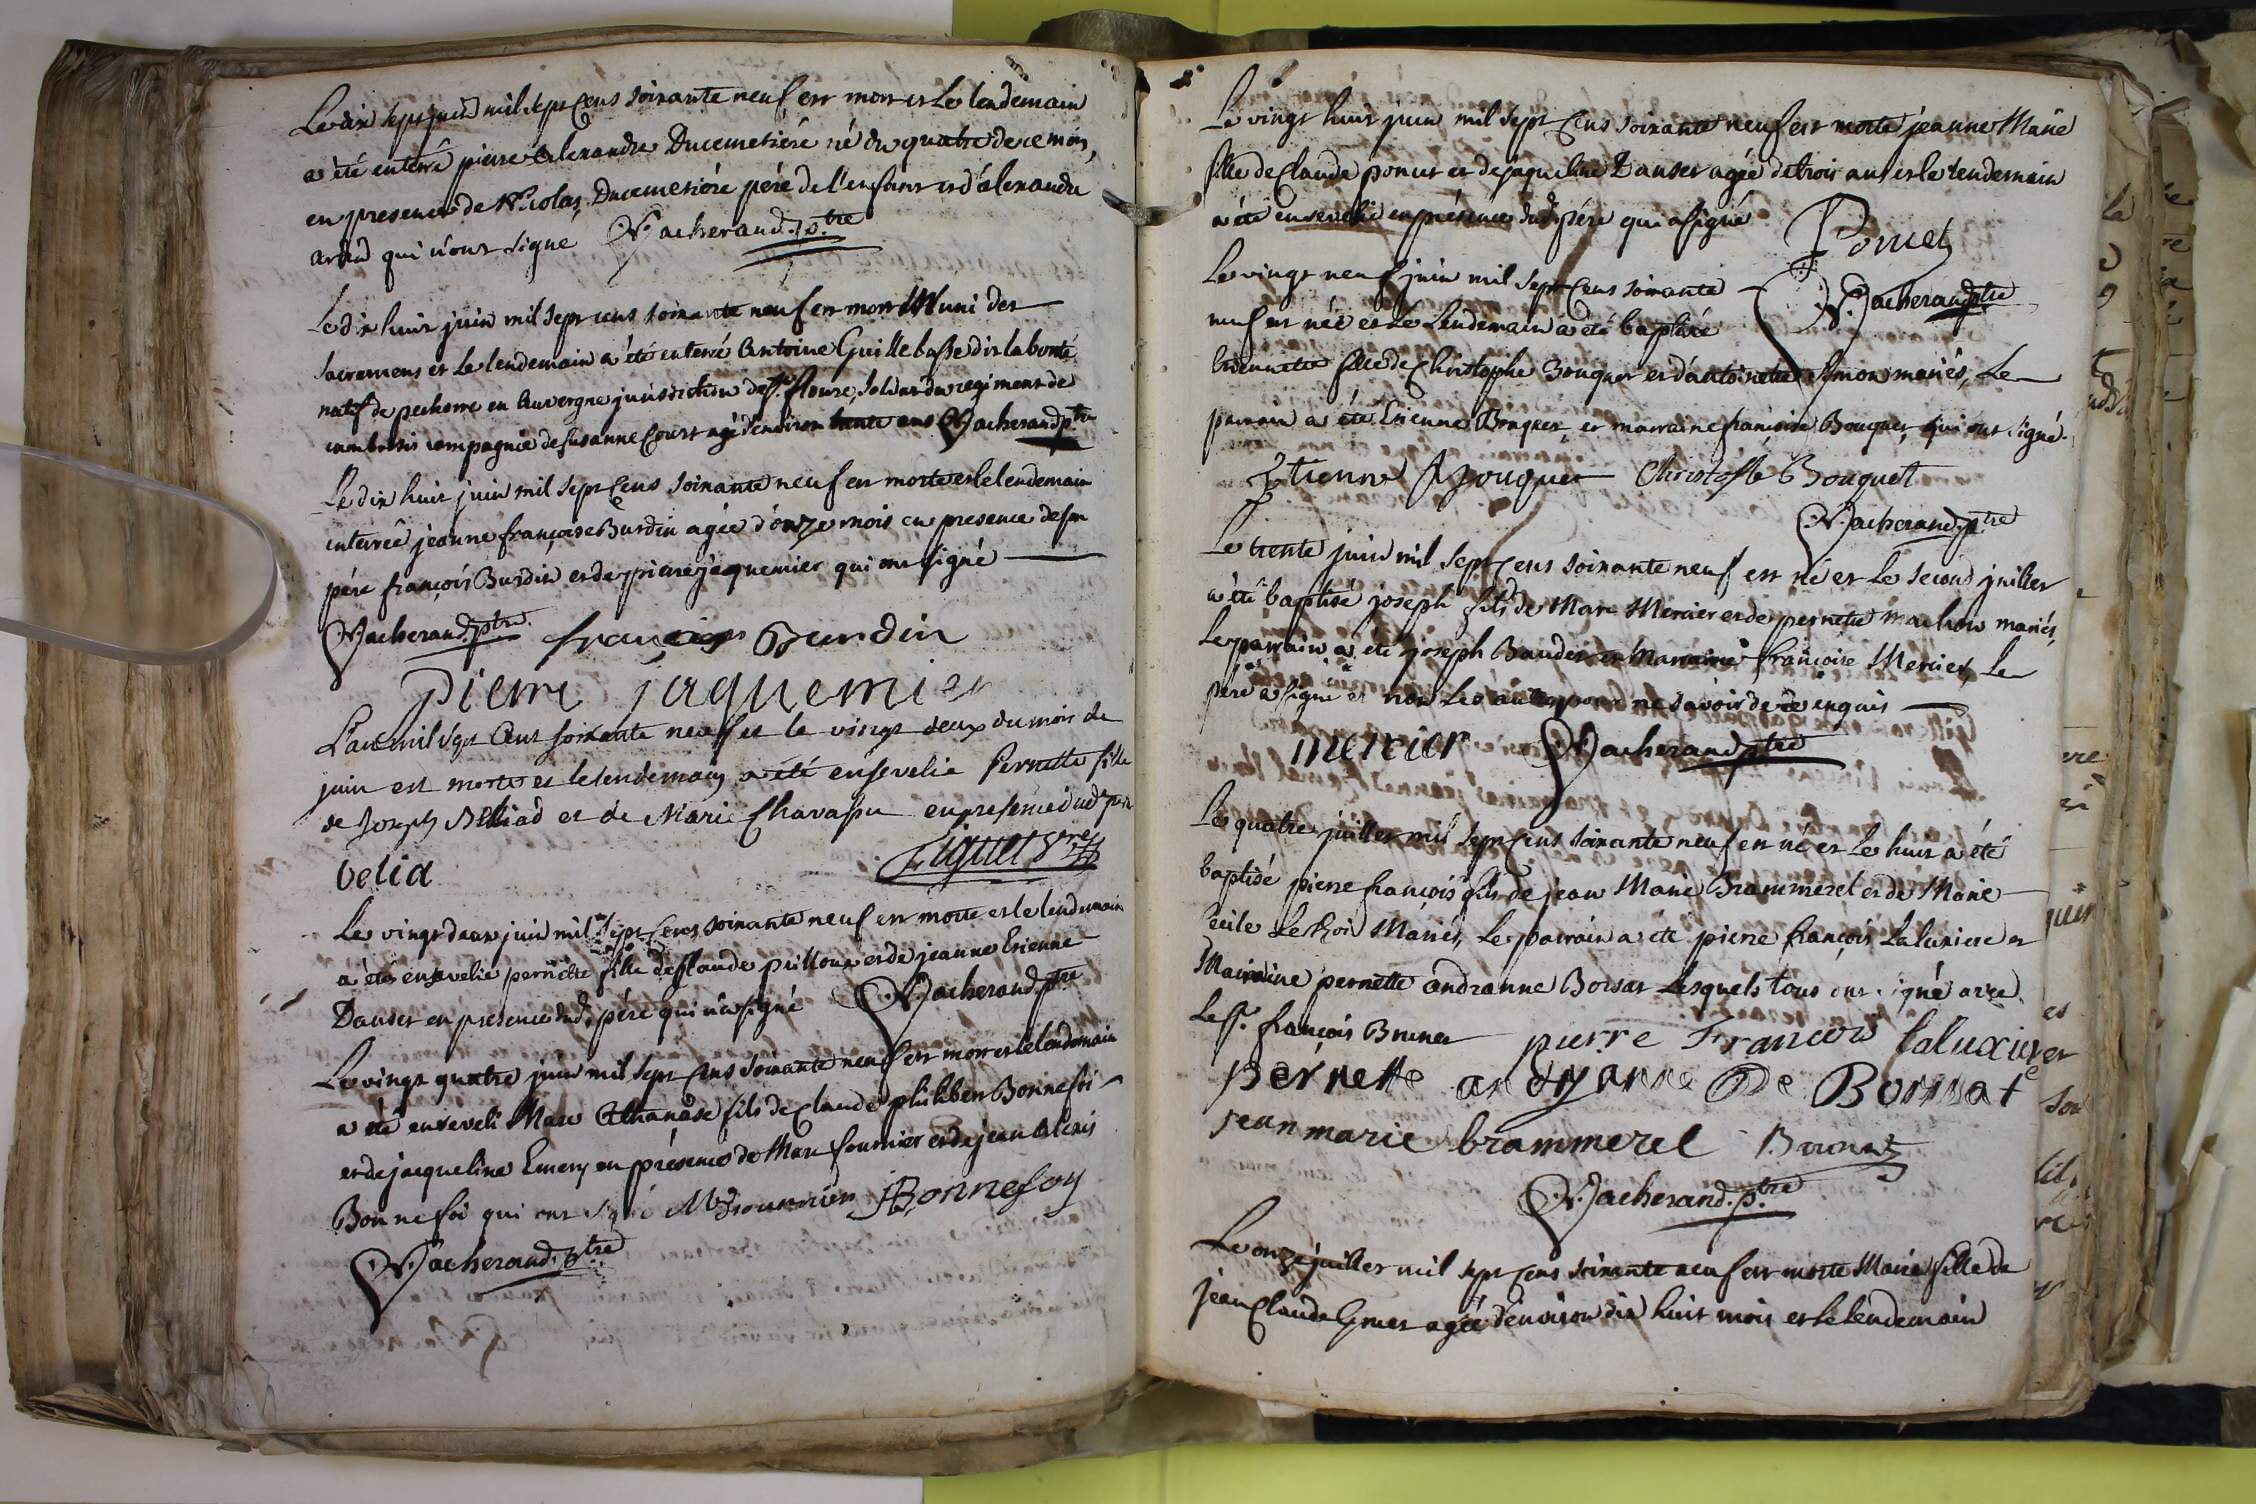 Le dix sept juin mil sept Cens soixante neuf est mort et Le lendemain
a été enterré pierre Alexandre Ducemetiére né du quatre de ce mois,
en presence de Nicolas Ducemetiére pére de l'enfant et d'alexandre
qui n'ont signé Vacherand p.tre
Le dix huit juin mil sept cens soixante neuf est mort Muni des
sacremens et Le lendemain a été enterré Antoine Guillebasse dit la bonté
natif de en Auvergne jurisdiction de S.t flour, soldat du regiment de
cambresis compagnie de susanne Court agé d'environ trente ans Vacherand p.tre
Le dix huit juin mil sept Cens soixante neuf est morte et le lendemain
enterrée jeanne françoise Burdin agée d'onze mois en presence de son
pére françois Burdin et de pierre jaquemier qui ont signé
Vacherand p.tre françois Burdin
pierre jaquemier
L'an mil sept Cent soixante neuf et le vingt deux du mois de
juin est morte et le lendemain a été ensevelie Pernette fille
de Joseph et de Marie Chavassu en presence dud. pere
velia Figuet
Le vingt deux juin mil sept Cens soixante neuf est morte et le lendemain
a été ensevelie pernette fille de Claude pilloux et de jeanne Etienne
Danset en presence dud. pére qui n'a signé Vacherand p.tre
Le vingt quatre juin mil sept Cens soixante neuf est mort et le lendemain
a été enseveli Marc Athanase fils de Claude philibert Bonnefoi
et de jacqueline Emery en présence de Marc fournier et de jean Alexis
Bonnefoi qui ont signé M fournier JBonnefoy
Vacherand p.tre
Le vingt huit juin mil sept Cens soixante neuf est morte jeanne Marie
fille de Claude poncet et de jaqueline Danset agée de trois ans et le lendemain
a été ensevelie en présence dud. pére qui a signé Poncet
Le vingt neuf juin mil sept Cens soixante Vacherand p.tre
neuf est née et Le Lendemain a été baptisée
Etiennette fille de Christophe Bouquet et d'antoinette Simon mariés, Le
parrain a été Etienne Bouquet et marraine françoise Bouquet, qui ont signé.
Etienne Bouquet Christofle Bouquet
Vacherand p.tre
Le trente juin mil sept Cens soixante neuf est né et Le second juillet
a été baptisé joseph fils de Marc Mercier et de pernette machon mariés,
Le parrain a été joseph Baudet et Marraine françoise Mercier, Le
pére a signé et non Les autres pour ne savoir de ce enquis
mercier Vacherand p.tre
Le quatre juillet mil sept Cens soixante neuf est né et Le huit a été
baptisé pierre françois fils de jean Marie Brammerel et de Marie
Cecile LeRoi Mariés, Le parrain a été pierre françois Laluxiere et
Marraine pernette andrianne Borsat Lesquels tous ont signé avec
Le S.r françois Brunet pierre François laluxier
pernette andryanne De Borssat
jean marie brammerel Brunet
Vacherand p.tre
Le onze juillet mil sept Cens soixante neuf est morte Marie fille de
jean Claude agée d'environ dix huit mois et Le lendemain